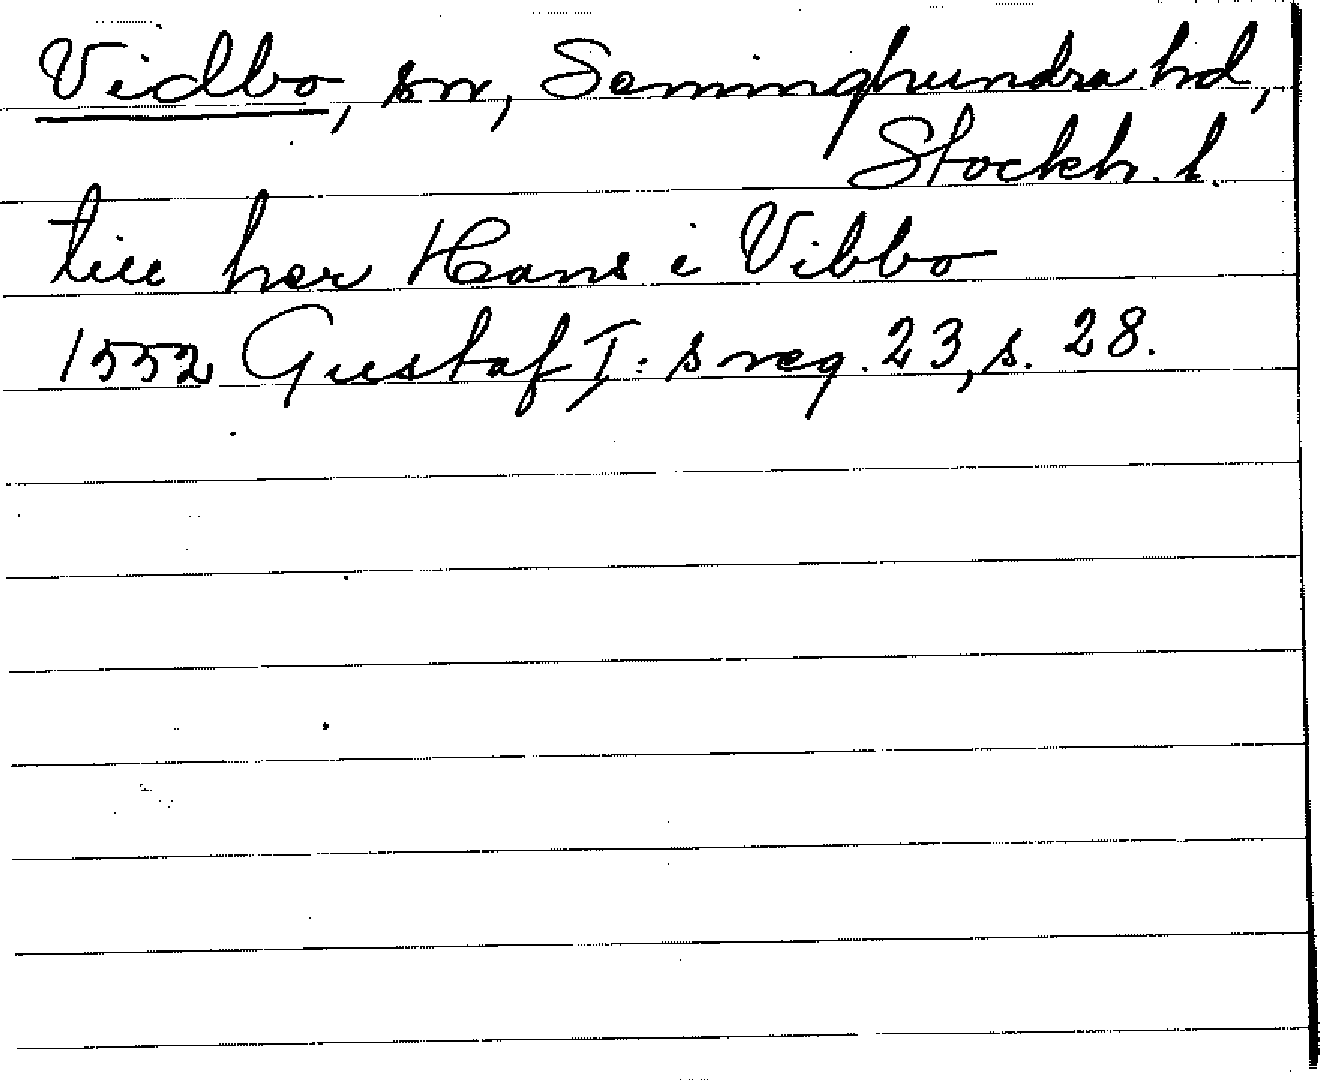 Vidbo, sn, Seminghundra hd,
Stockh. l.
till her Hans i Vibbo
1552 Gustaf I:s reg. 23, s. 28.